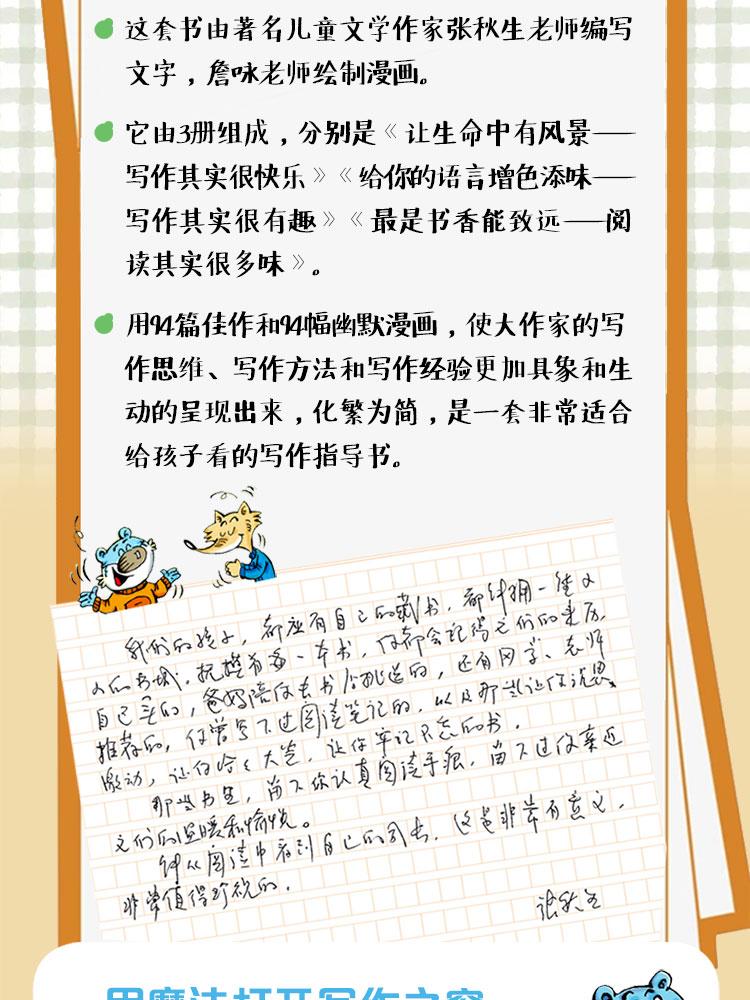 这套书由著名儿童文学作家张秋生老师编写
文字，詹咏老师绘制漫画。
它由3册组成，分别是《让生命中有风景——
写作其实很快乐》《给你的语言增色添味——
写作其实很有趣》《最是书香能致远——阅
读其实很多味》。
用94篇佳作和94幅幽默漫画，使大作家的写
作思维、写作方法和写作经验更加具象和生
动的呈现出来，化繁为简，是一套非常适合
给孩子看的写作指导书。
我们的孩子，都应有自己的藏书，都能拥一
抚摸着每一本书，你都会记得它们的来历，
自己买的，爸妈陪你去书店挑选的，还有同学、老师
推荐的，你曾写下过阅读笔记的，以及那些让你沉思、
激动，让你哈哈大笑，让你牢记不忘的书，
那些书里，留下你认真阅读手痕，留下过你亲近
它们的温暖和愉悦。
能从阅读中看到自己的，这是非常有意义，
非常值得珍视的。
张秋生
用魔法打开写作之窗